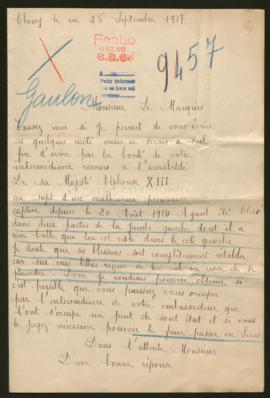 Thevoy le 25 Septembre 1917
Fecho
9457
Gaulon
Monsieur Le Marquis
Excusez moi si je permet de vous écrire
ces quelques mots mais je serais a suit
fier d'avoir par la bonté de votre
intermédiaire recours a l'amabilité
De sa Majesté Alphonse XIII
au sujet d'un malheureux prisonnier
captive depuis le 20 Août 1914 Ayant été blessé
dans deux parties de la jambe gauche dont il a
une balle qui lui est resté dans le coté gauche
je doute que ses blessures soit complètement rétablie
car sur mes lettres reçues de lui il ne cesse de se
plaindre Donc je voudrais pouvoir obtenir si
c'est possible que vous puissiez vous occuper
par l'intermédiaire de votre ambassadeur que
l'ont s'occupe un peut de sont état et si vous
le jugez nécessaire pouvoir le faire passer en Suisse
Dans l'attente Monsieur
D'une bonne réponse